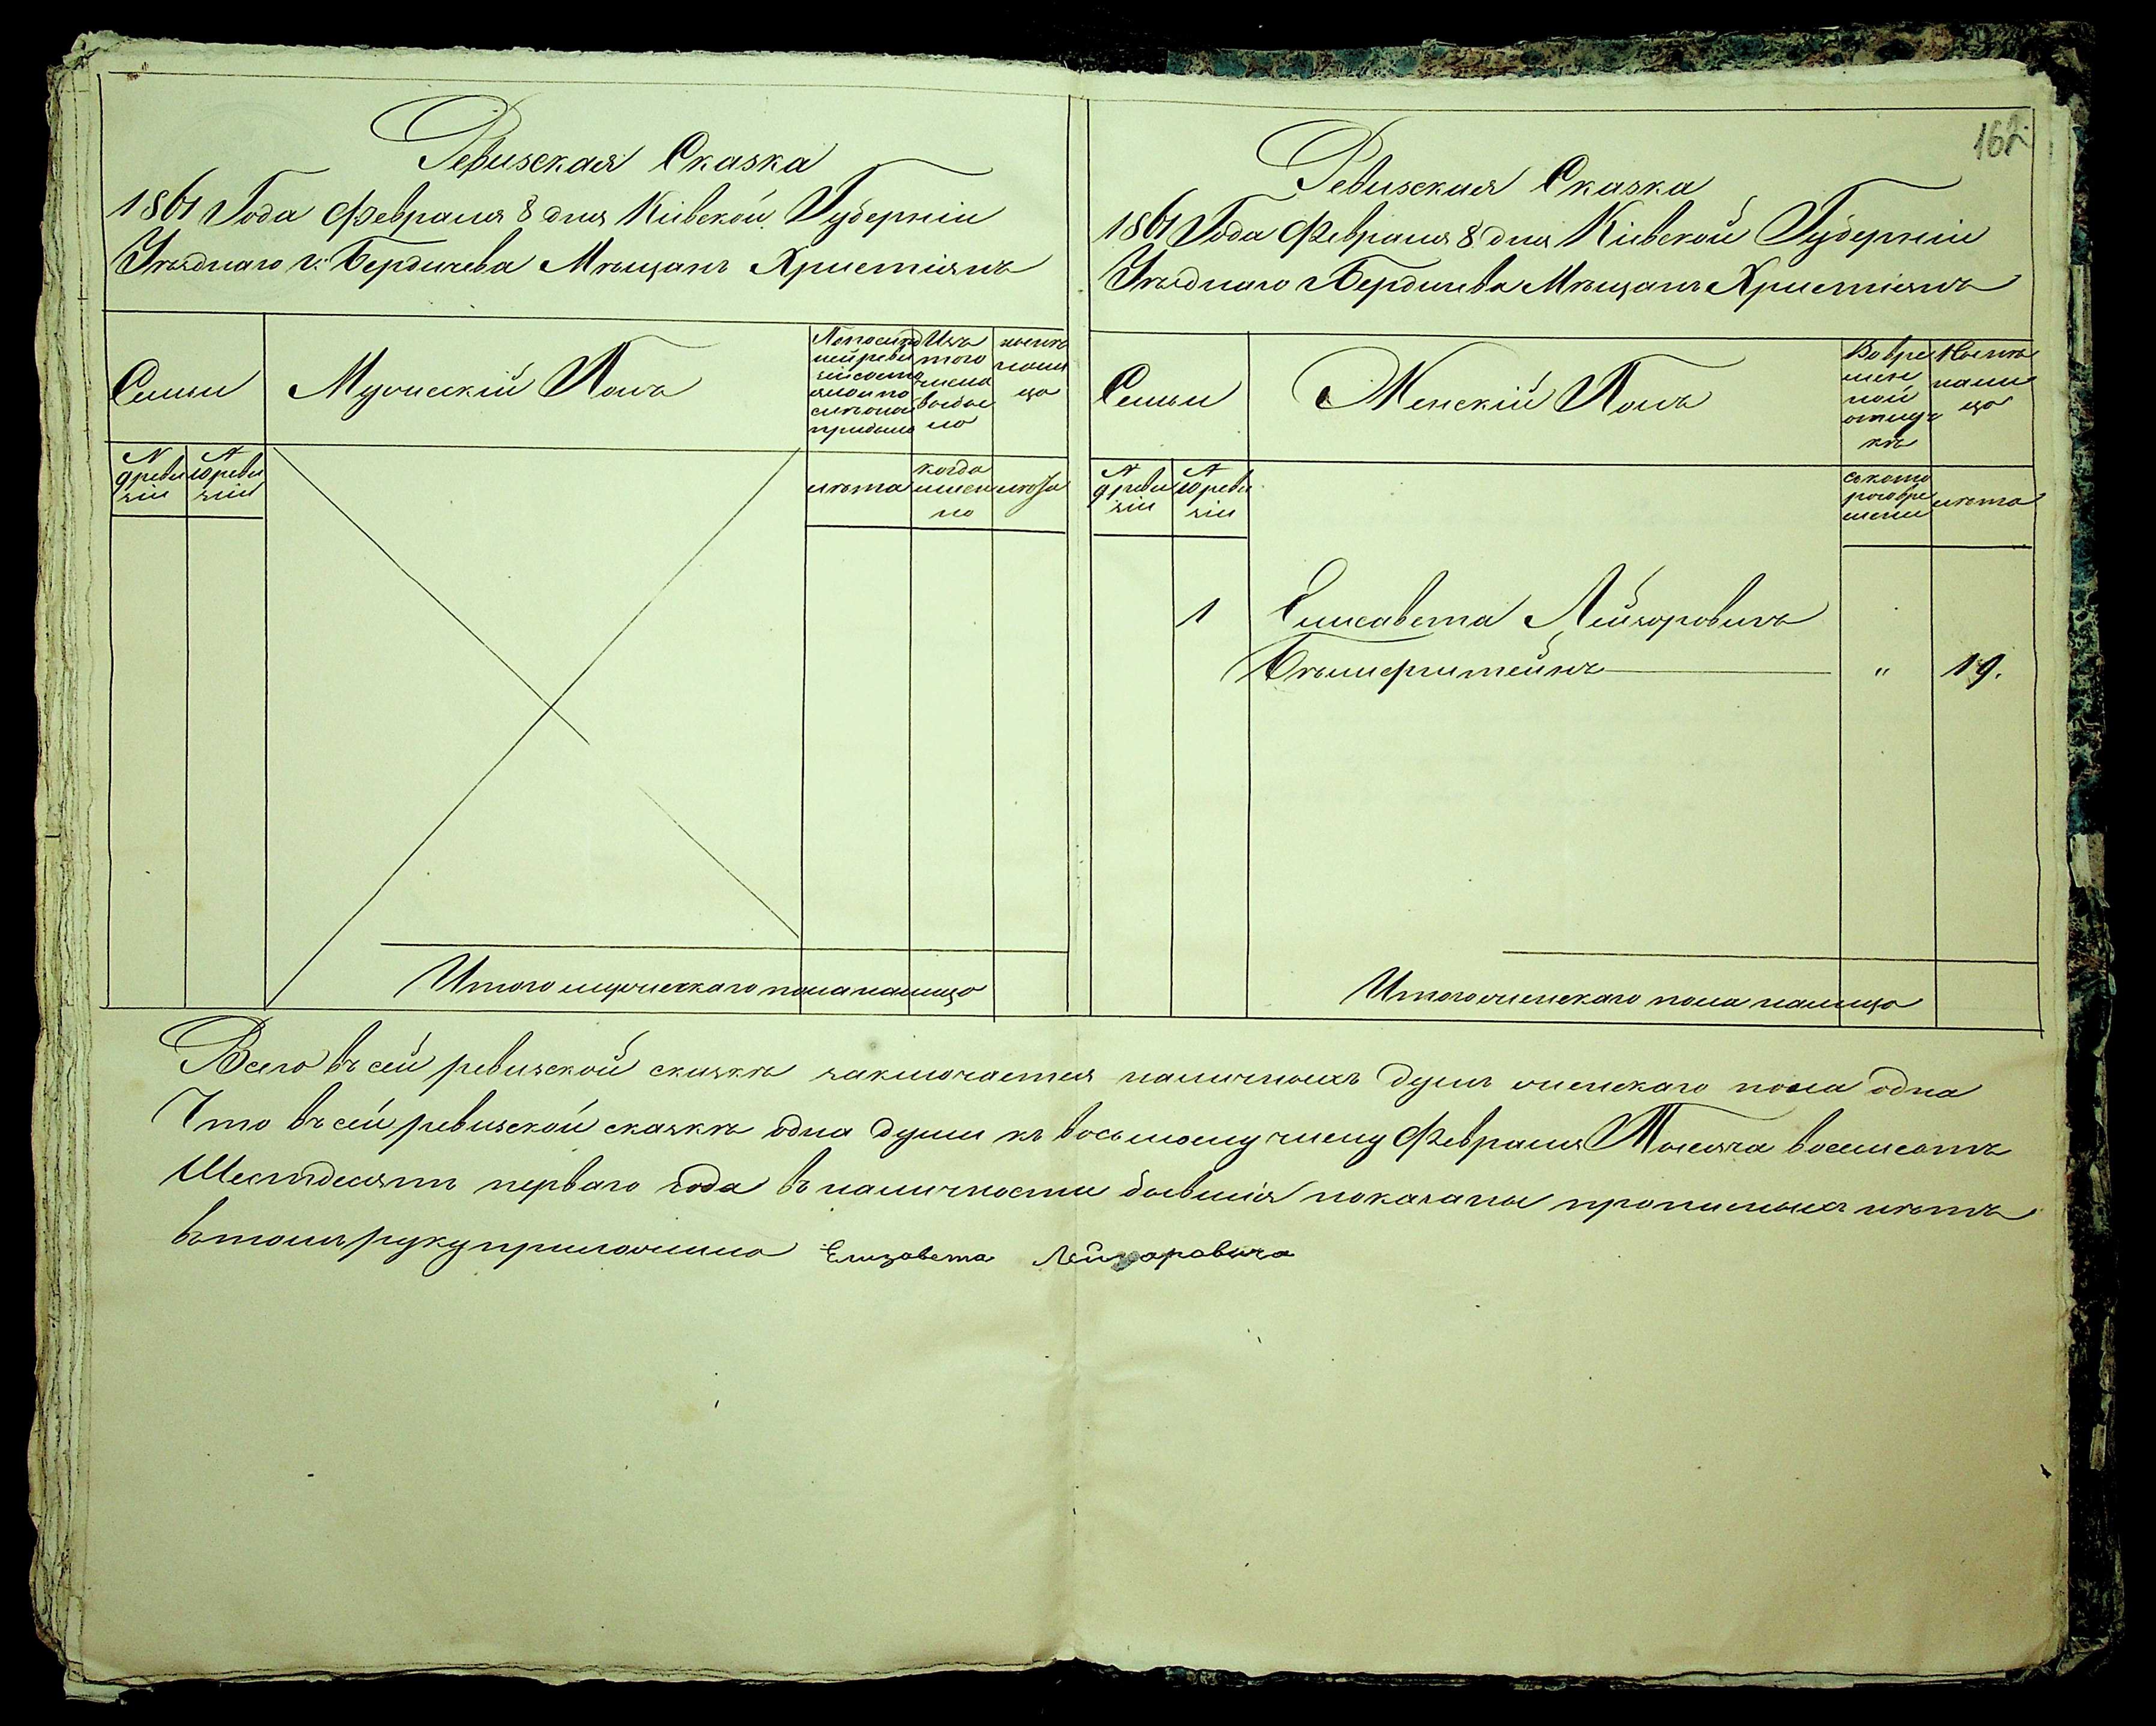 162
Ревизская Сказка
1861 Года Февраля 8 дня Кіевской Губерніи
Уѣзднаго г. Бердичева Мѣщанъ Христіянъ
Семьи
Мужескій Полъ
По послед
ней реви
зіи состо
яло и по
слѣ она
прибыло
Изъ
того
числа
выбы
ло
нынѣ
нали
цо
N
9 реви
зіи
N
10 реви
зіи
лѣта
когда
имен
но
лѣта
Итого мужескаго пола налицо
Ревизская Сказка
1861 Года Февраля 8 дня Кіевской Губерніи
Уѣзднаго г Бердичева Мѣщанъ Христіянъ
Семьи
Женскій Полъ
Во вре
мен
ной
отлуч
кѣ
Нынѣ
нали
цо
N
9 реви
зіи
N
10 реви
зіи
съ кото
раго вре
мени
лѣта
1 Елисавета Лейзоровичъ
Бѣлиерштейнъ " 19.
Итого женскаго пола налицо
Всего въ сей ревизской сказкѣ заключается наличныхъ душъ женскаго пола одна
Что въ сей ревизской сказкѣ одна души къ восьмому числу Февраля Мѣсяца восемсотъ
Шестдесятъ перваго года въ наличности бывшія показаны прописныхъ нѣтъ
въ томъ руку приложила Елизавета Лейзаровича